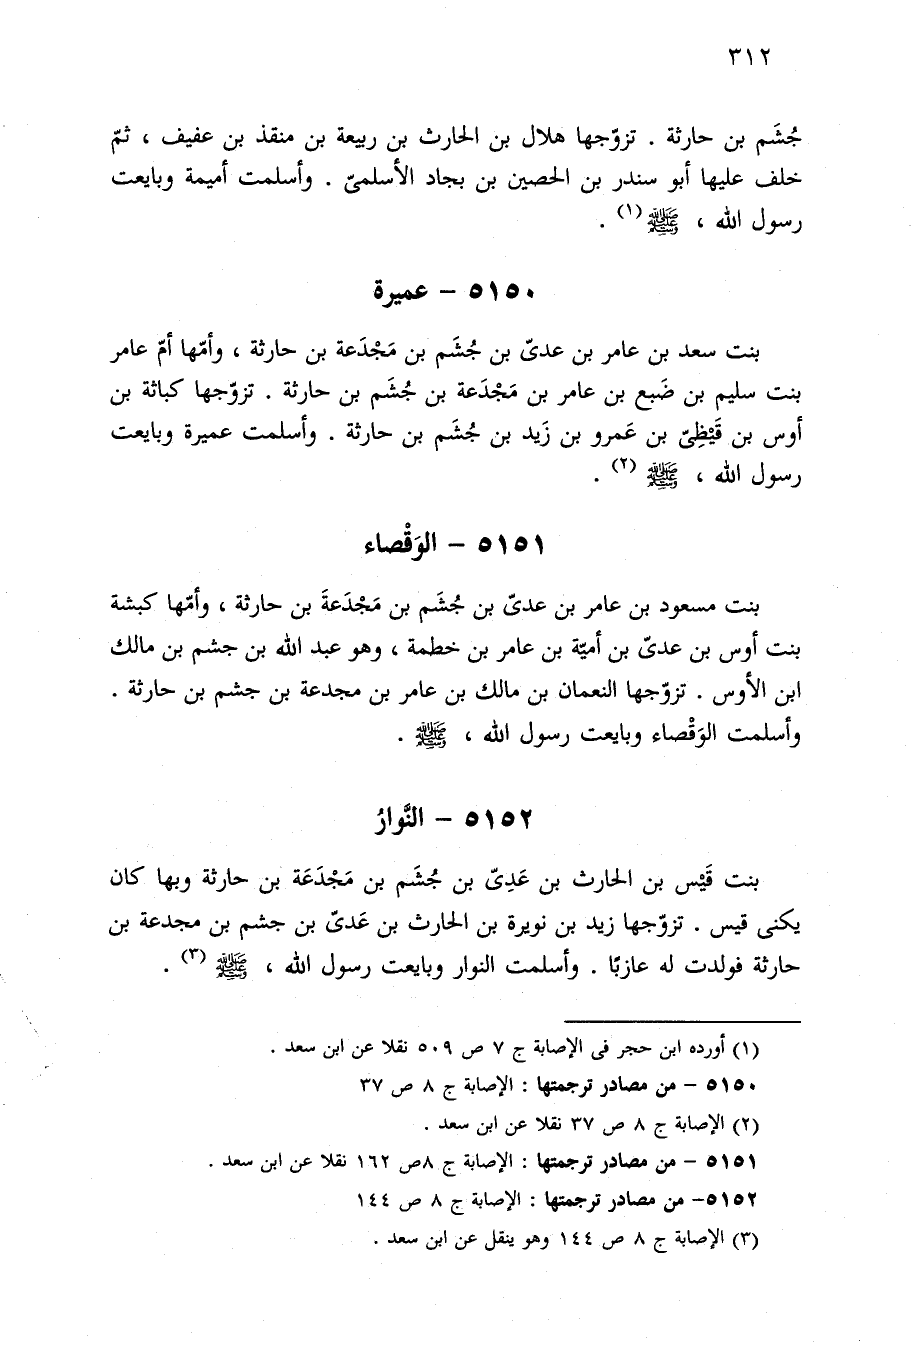 ٣١٢
جُشَم بن حارثة . تزوّجها هلال بن الحارث بن ربيعة بن منقذ بن عفيف ، ثمّ
خلف عليها أبو سندر بن الحصين بن بجاد الأسلمىّ . وأسلمت أميمة وبايعت
رسول الله ، ﷺ (١) .
٥١٥٠ – عميرة
بنت سعد بن عامر بن عدىّ بن جُشَم بن مَجْدَعة بن حارثة ، وأمّها أمّ عامر
بنت سليم بن ضَبع بن عامر بن مَجْدَعة بن جُشَم بن حارثة . تزوّجها كباثة بن
أوس بن قَيْظِىّ بن عَمرو بن زَيد بن جُشَم بن حارثة . وأسلمت عميرة وبايعت
رسول الله ، ﷺ (٢) .
٥١٥١ – الوَقْصاء
بنت مسعود بن عامر بن عدىّ بن جُشَم بن مَجْدَعةَ بن حارثة ، وأمّها كبشة
بنت أوس بن عدىّ بن أميّة بن عامر بن خطمة ، وهو عبد الله بن جشم بن مالك
ابن الأوس . تزوّجها النعمان بن مالك بن عامر بن مجدعة بن جشم بن حارثة .
وأسلمت الوَقْصاء وبايعت رسول الله ، ﷺ .
٥١٥٢ – النَّوارُ
بنت قَيْس بن الحارث بن عَدِىّ بن جُشَم بن مَجْدَعَة بن حارثة وبها كان
يكنى قيس . تزوّجها زيد بن نويرة بن الحارث بن عَدىّ بن جشم بن مجدعة بن
حارثة فولدت له عازبًا . وأسلمت النوار وبايعت رسول الله ، ﷺ (٣) .
(١) أورده ابن حجر فى الإصابة ج ٧ ص ٥٠٩ نقلا عن ابن سعد .
٥١٥٠ – من مصادر ترجمتها : الإصابة ج ٨ ص ٣٧
(٢) الإصابة ج ٨ ص ٣٧ نقلا عن ابن سعد .
٥١٥١ – من مصادر ترجمتها : الإصابة ج ٨ص ١٦٢ نقلا عن ابن سعد .
٥١٥٢– من مصادر ترجمتها : الإصابة ج ٨ ص ١٤٤
(٣) الإصابة ج ٨ ص ١٤٤ وهو ينقل عن ابن سعد .